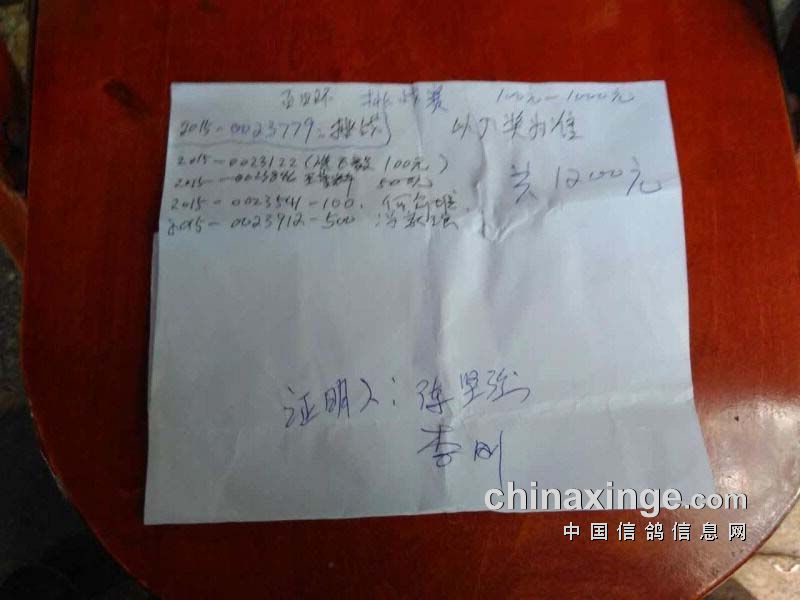 挑战赛 100元—1000元
2015-0023779:挑战 以下奖为准
2015-0023122 ( 100元)
2015- 500元 共1200元
2015-0023541-100.
2015-0023912-500
证明人:陈坚强
李刚
chinaxinge.com
中国信鸽信息网